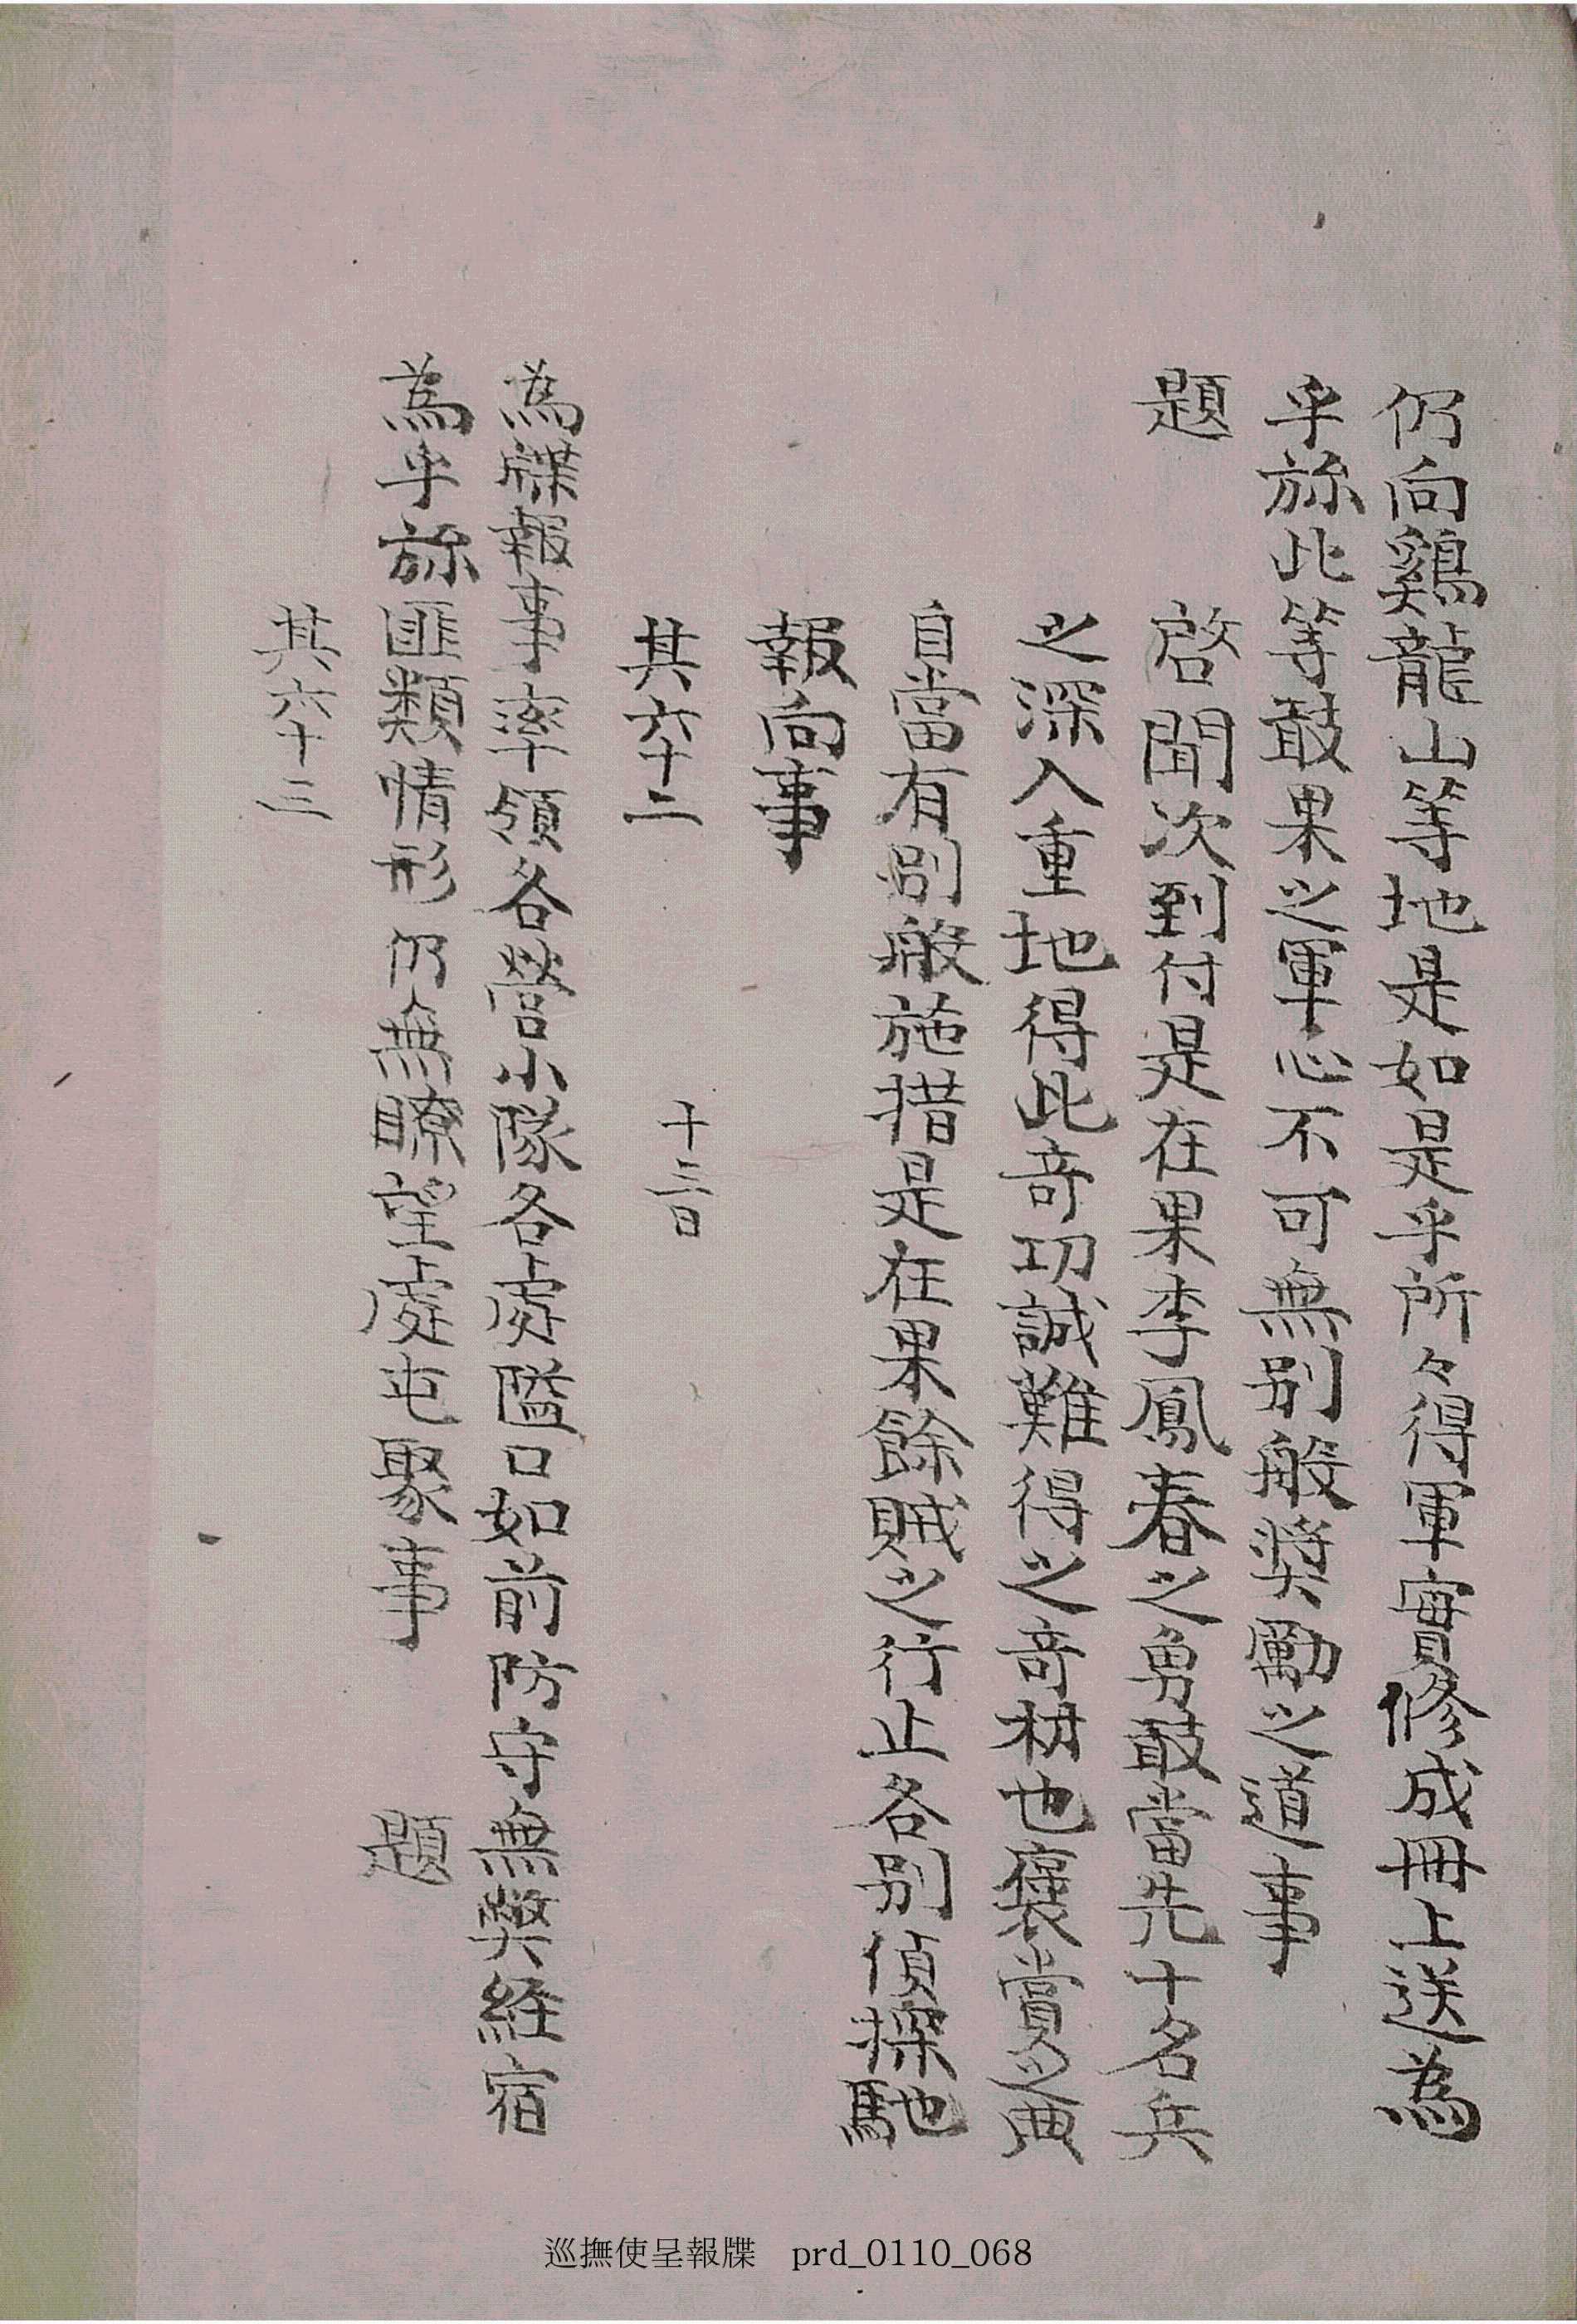 仍向鷄龍山等地是如是乎所々得軍實修成冊上送為
乎旀此等敢果之軍心不可無別般奬勵之道事
題　啓聞次到付是在果李鳳春之勇敢當先十名兵
之深入重地得此竒功誠難得之竒材也褒賞之典
自當有別般施措是在果餘賊之行止各別偵探馳
報向事
其六十二　十三日
為牒報事率領各營小隊各處隘口如前防守無獘経宿
為乎旀匪類情形仍無瞭望處屯聚事　題
其六十三
巡撫使呈報牒　prd_0110_068